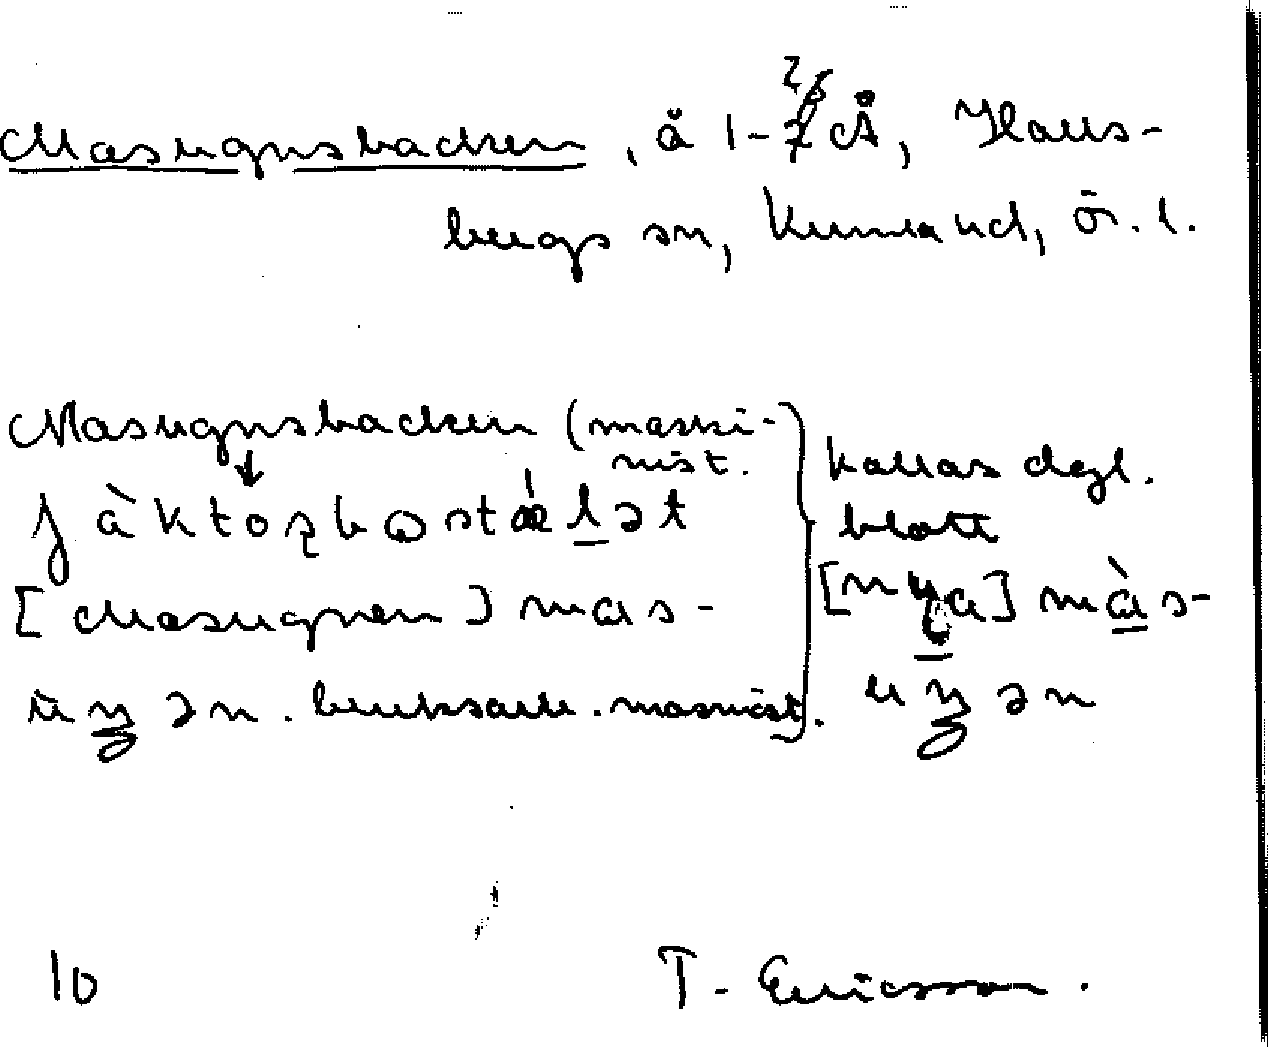 Masugnsbacken, å 1-2 Å, Halls-
bergs sn, Kumla hd, Ö.r. l.
Masugnsbacken (maski-
nist.
[Masugnen] mas-
ùŋən. bruksarb. maskinist.
kallas dgl.
blott
[nya] màs-
uŋən
10
T. Ericsson.